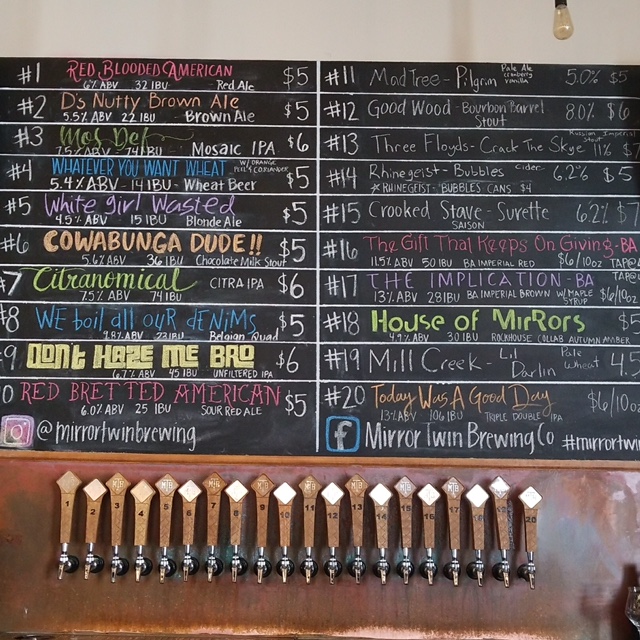 #1 RED BLOODED AMERICAN $5
6% ABV 32 IBU Red Ale
#2 D's Nutty Brown Ale $5
5.5% ABV 22 IBU Brown Ale
#3 Mos Def $6
7.5% ABV - 74 IBU Mosaic IPA
#4 WHATEVER YOU WANT WHEAT W/ ORANGE PEEL & CORIANDER $5
5.4% ABV - 14 IBU - Wheat Beer
#5 White girl Wasted $5
4.5% ABV 15 IBU Blonde Ale
#6 COWABUNGA DUDE!! $5
5.6% ABV 36 IBU Chocolate Milk Stout
#7 Citranomical CITRA IPA $6
7.5% ABV 74 IBU
#8 WE boil all ouR dENiMs $5
23 IBU Belgian Quad
#9 DON't HAZE ME BRO $6
6.7% ABV 45 IBU UNFILTERED IPA
0 RED BRETTED AMERICAN $5
6.07 ABV 25 IBU SOUR RED ALE
@mirrortwinbrewing
#11 MadTree - Pilgrim Pale Ale cranberry vanilla 5.0% $5
#12 Good Wood - Bourbon Barrel Stout 8.0% $6
#13 Three Floyds - Crack The Skye Russian Imperial Stout 11% $7
#14 Rhinegeist - Bubbles Cider 6.2% $5
* RHINEGEIST - BUBBLES CANS $4
#15 Crooked Stave - Surette 6.2% $7
SAISON
#16 The Gift That Keeps On Giving - BA
11.5% ABV 50 IBU BA IMPERIAL RED $6/10oz
#17 THE IMPLICATION - BA
13% ABV 28 IBU BA IMPERIAL BROWN W/ MAPLE SYRUP $6/10oz
#18 House of MirRors $5
4.9% ABV 30 IBU ROCKHOUSE COLLAB AUTUMN AMBER
#19 Mill Creek - Lil Darlin Pale Wheat 4.5
#20 Today Was A Good Day $6/10oz
13% ABV 106 IBU TRIPLE DOUBLE IPA
f Mirror Twin Brewing Co #mirrortwin
1 2 3 4 5 6 7 8 9 10 11 12 13 14 15 16 17 18 20